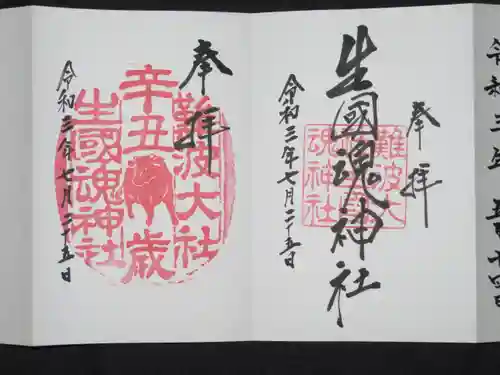 奉拝
難波大社
辛丑歳
生國魂神社
令和三年七月二十五日
奉拝
生國魂神社
難波大
魂神社
令和三年七月二十五日
令和三年